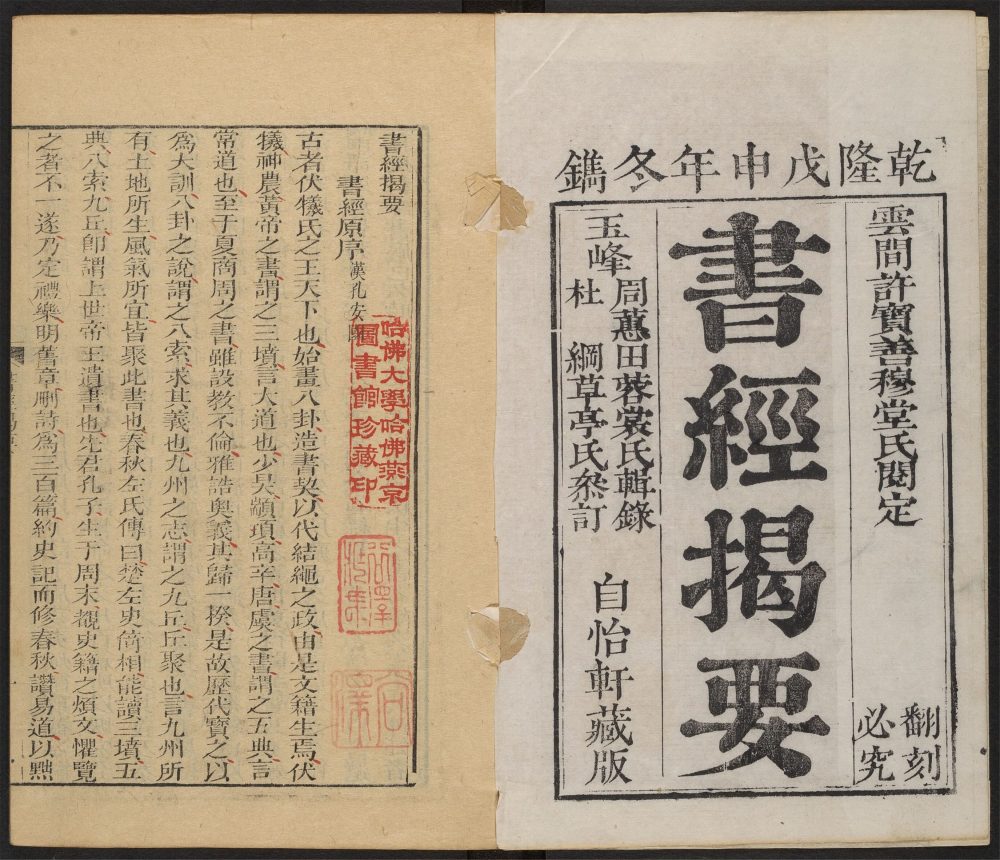 乾隆戊申年冬鐫
雲間許寶善穆堂氏閱定
翻刻
必究
書經揭要
玉峰
周蕙田蓉裳氏輯錄
杜綱草亭氏叅訂
自怡軒藏版
書經揭要
書經原序漢孔安國
古者伏犧氏之王天下也始畫八卦造書契以代結繩之政由是文籍生焉伏
犧神農黃帝之書謂之三墳言大道也少昊顓頊高辛唐虞之書謂之五典言
常道也至于夏商周之書雖設教不倫雅誥奧義其歸一揆是故歷代寶之以
爲大訓八卦之說謂之八索求其義也九州之志謂之九丘丘聚也言九州所
有土地所生風氣所宜皆聚此書也春秋左氏傳曰楚左史倚相能讀三墳五
典八索九丘卽謂上世帝王遺書也先君孔子生于周末覩史籍之煩文懼覽
之者不一遂乃定禮樂明舊章刪詩爲三百篇約史記而修春秋讚易道以黜
哈佛大學哈佛燕京
圖書館珍藏印